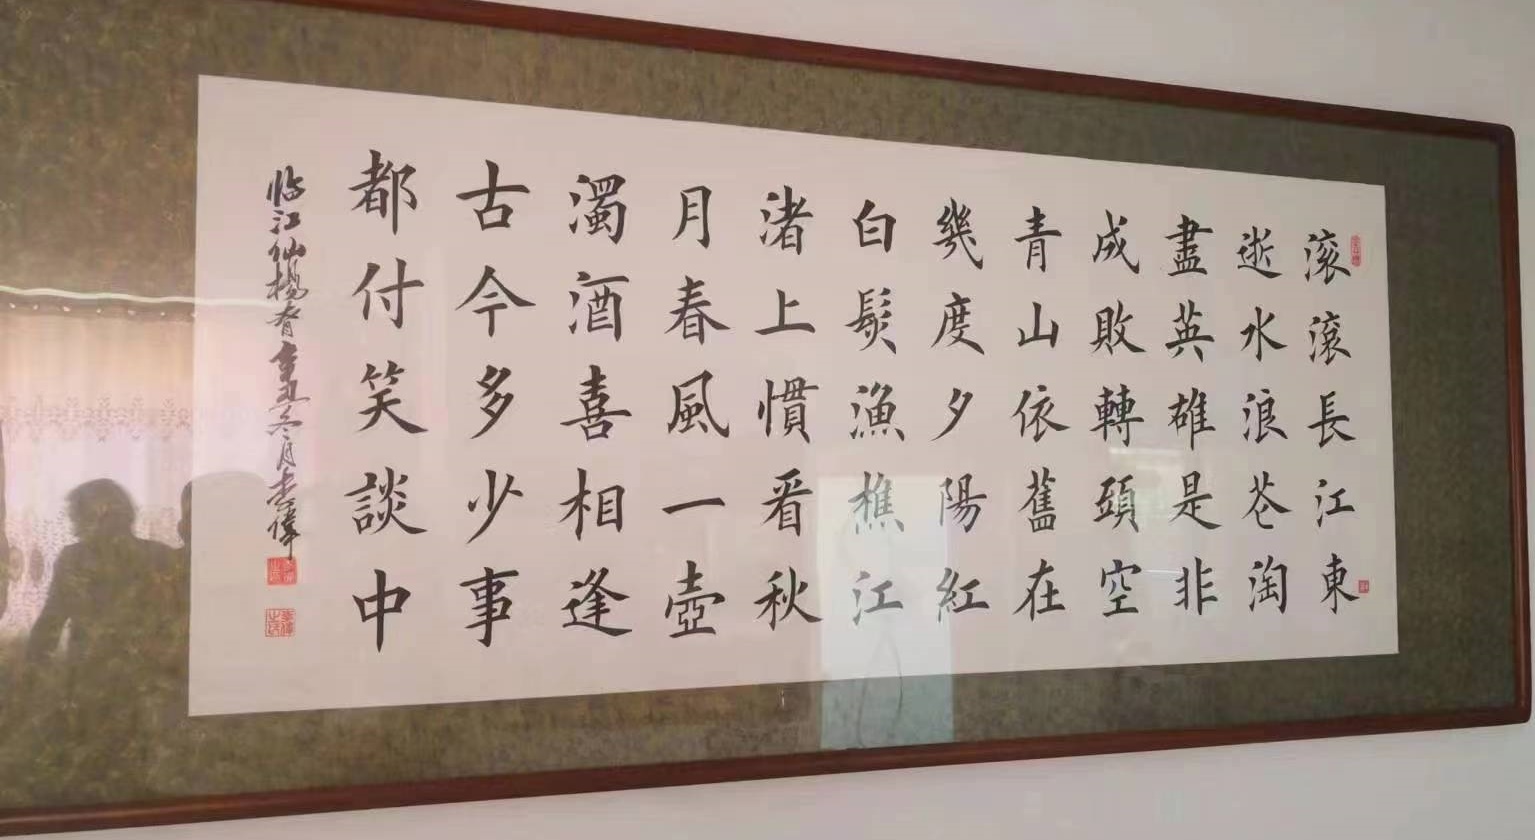 滚滚長江東
逝水浪花淘
盡英雄是非
成敗轉頭空
青山依舊在
幾度夕陽紅
白髮漁樵江
渚上慣看秋
月春風一壺
濁酒喜相逢
古今多少事
都付笑談中
临江仙楊眘辛丑冬月李偉